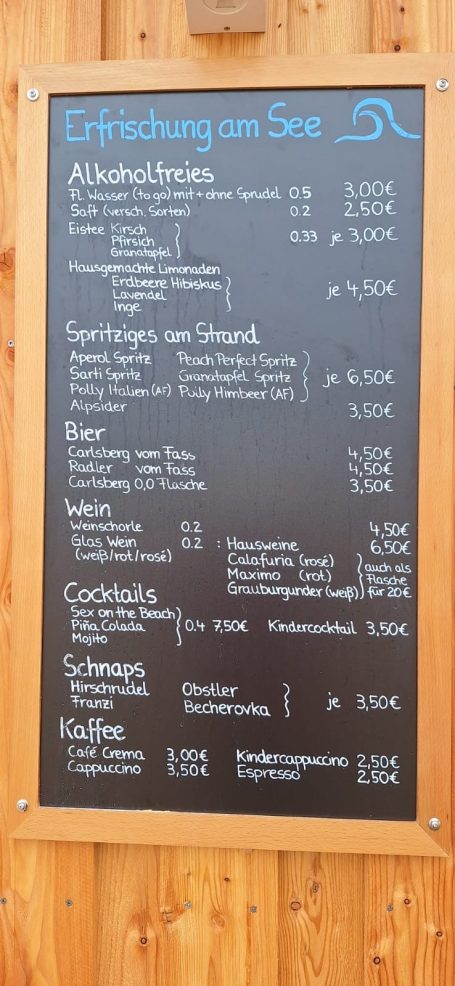 Erfrischung am See
Alkoholfreies
Fl. Wasser (to go) mit + ohne Sprudel 0.5 3,00€
Saft (versch. Sorten) 0.2 2,50€
Eistee Kirsch
Pfirsich 0.33 je 3,00€
Granatapfel
Hausgemachte Limonaden
Erdbeere Hibiskus
Lavendel je 4,50€
Inge
Spritziges am Strand
Aperol Spritz Peach Perfect Spritz
Sarti Spritz Granatapfel Spritz je 6,50€
Polly Italien (AF) Polly Himbeer (AF)
Alpsider 3,50€
Bier
Carlsberg vom Fass 4,50€
Radler vom Fass 4,50€
Carlsberg 0,0 Flasche 3,50€
Wein
Weinschorle 0.2 4,50€
Glas Wein 0.2 : Hausweine 6,50€
(weiß/rot/rosé) Calafuria (rosé) auch als
Maximo (rot) Flasche
Grauburgunder (weiß) für 20€
Cocktails
Sex on the Beach
Piña Colada 0.4 7,50€ Kindercocktail 3,50€
Mojito
Schnaps
Hirschrudel Obstler
Franzi Becherovka je 3,50€
Kaffee
Café Crema 3,00€ Kindercappuccino 2,50€
Cappuccino 3,50€ Espresso 2,50€